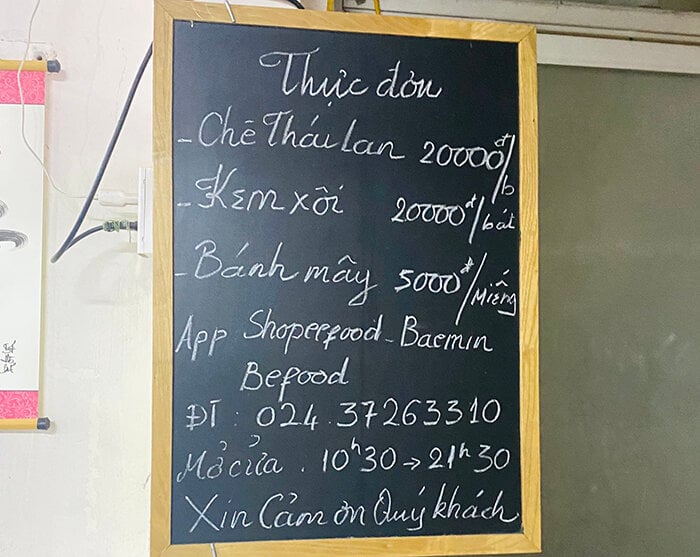 Thực đơn
- Chè Thái Lan 20000đ/b
- Kem xôi 20000đ/bát
- Bánh mây 5000đ/Miếng
App Shopeefood - Baemin
Befood
ĐT : 024.37263310
Mở cửa . 10h30 → 21h30
Xin Cảm ơn Quý khách